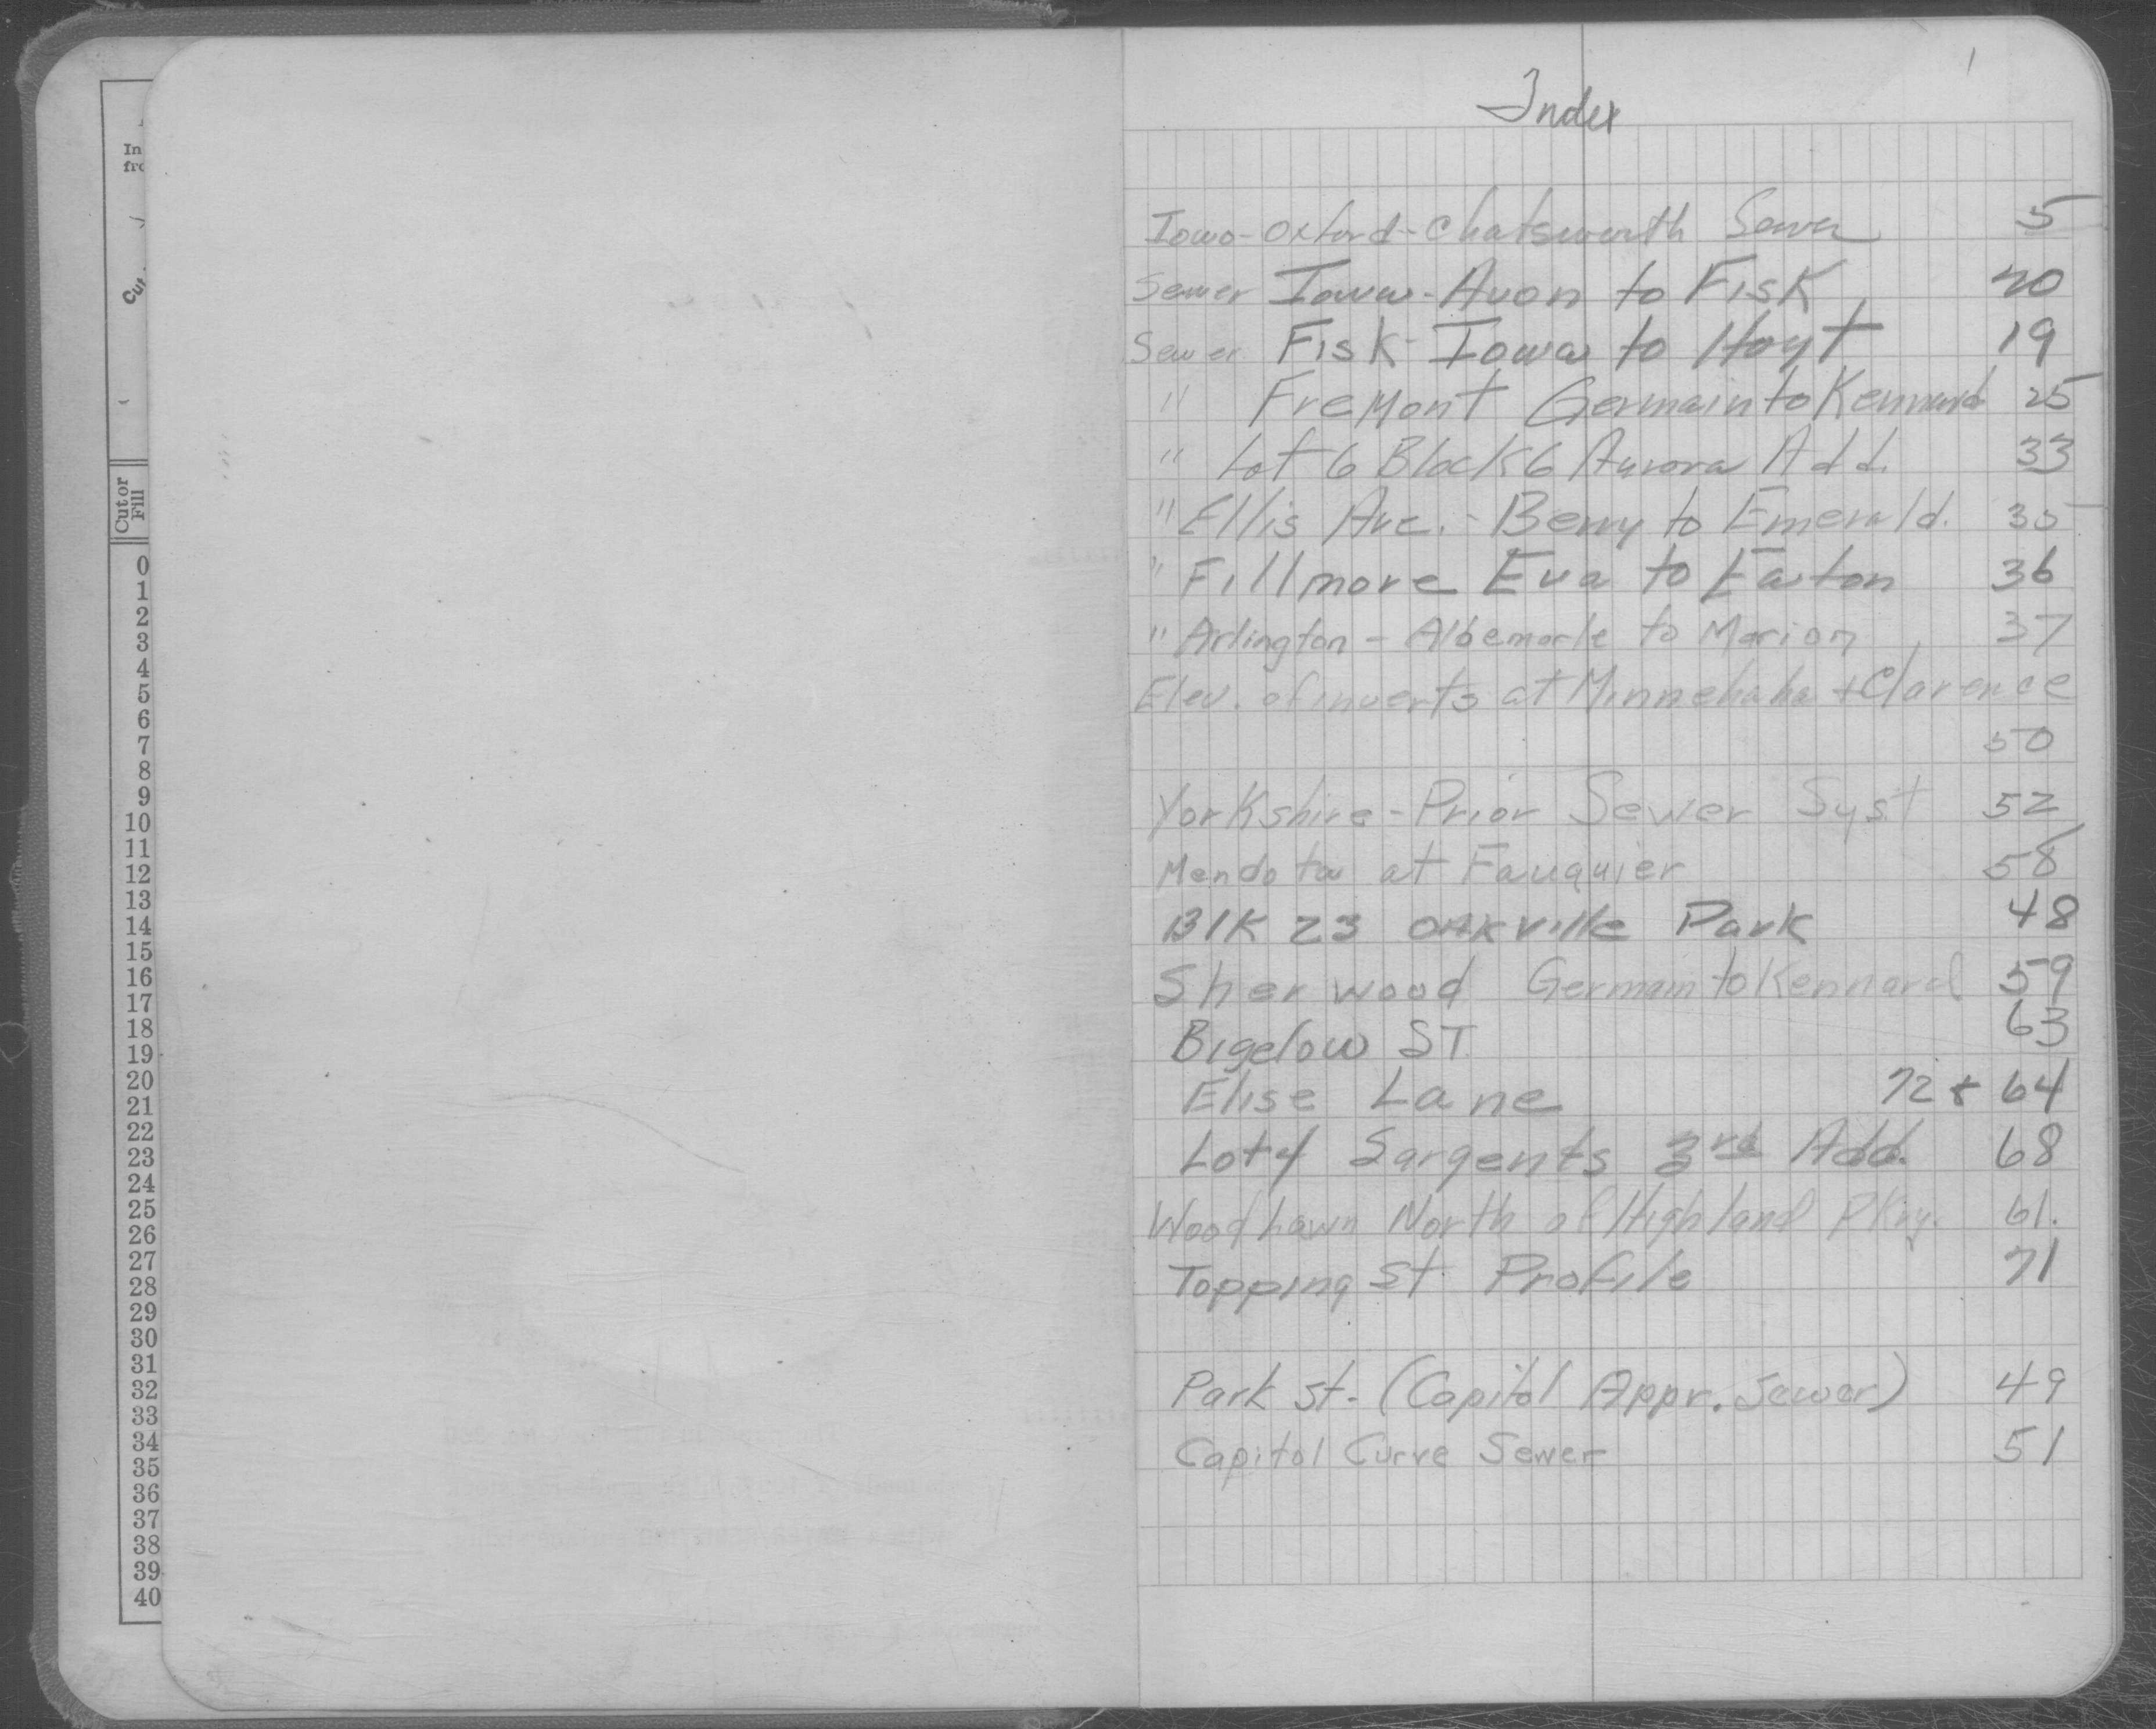 In
fro
Cut or
Fill
0
1
2
3
4
5
6
7
8
9
10
11
12
13
14
15
16
17
18
19
20
21
22
23
24
25
26
27
28
29
30
31
32
33
34
35
36
37
38
39
40
1
Index
Iowa-Oxford-Chatsworth Sewer 5
Sewer Iowa-Avon to Fisk 20
Sewer Fisk-Iowa to Hoyt 19
" Fremont Germain to Kennard 25
" Lot 6 Block 6 Aurora Add. 33
" Ellis Ave.-Berry to Emerald. 35
" Fillmore Eva to Eaton 36
" Arlington - Albemarle to Marion 37
Elev. of inverts at Minnehaha + Clarence
50
Yorkshire-Prior Sewer Syst 52
Mendota at Fauquier 58
Blk 23 Oakville Park 48
Sherwood Germain to Kennard 59
Bigelow ST. 63
Elise Lane 72 & 64
Lot 4 Sargents 3rd Add. 68
Woodlawn North of Highland Pkwy. 61.
Topping St. Profile 71
Park St. (Capitol Appr. Sewer) 49
Capitol Curve Sewer 51